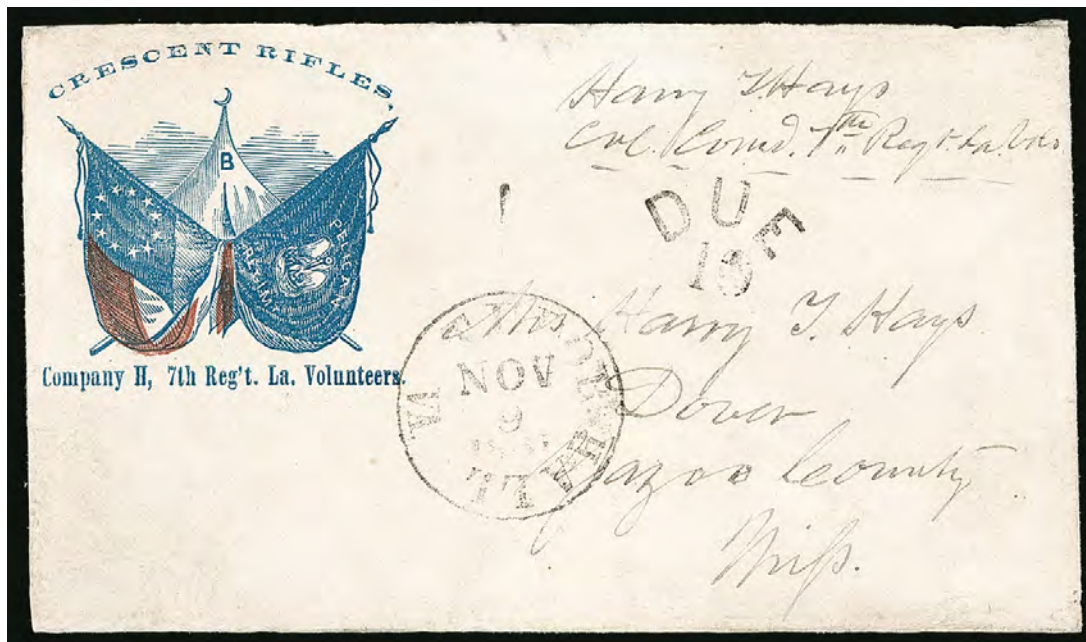 CRESCENT RIFLES,
B
PELICAN
REGIM
Company H, 7th Reg't. La. Volunteers.
Harry T. Hays
Col. Comd. 7th Regt. La. Vols
DUE
10
NOV
9
VA
HALL
Mrs Harry T. Hays
Dover
Yazoo County
Miss.